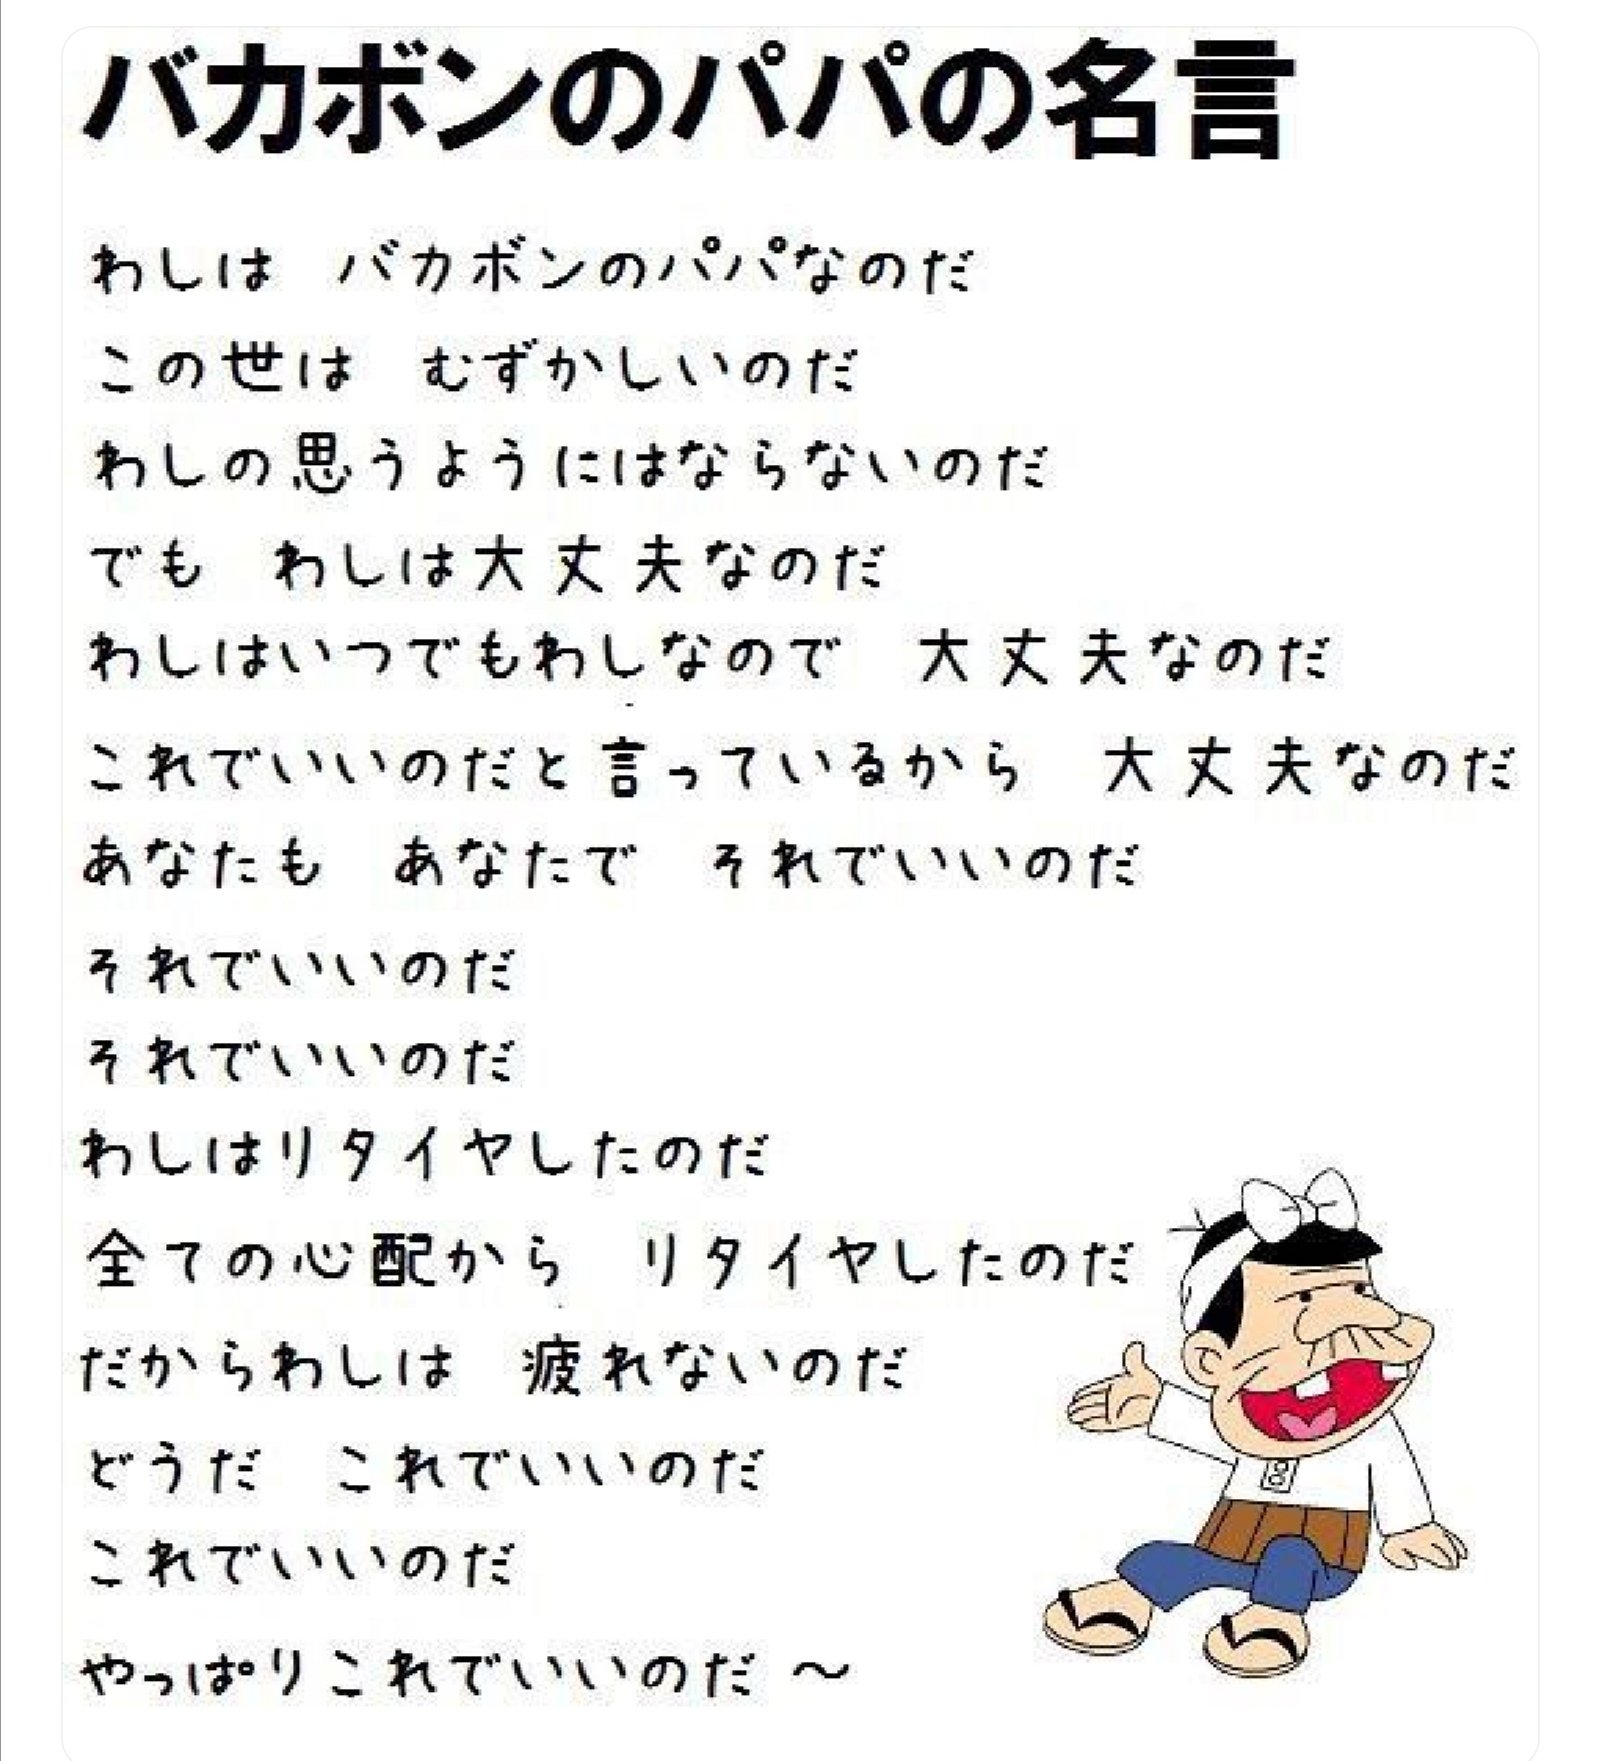 バカボンのパパの名言
わしは　バカボンのパパなのだ
この世は　むずかしいのだ
わしの思うようにはならないのだ
でも　わしは大丈夫なのだ
わしはいつでもわしなので　大丈夫なのだ
これでいいのだと言っているから　大丈夫なのだ
あなたも　あなたで　それでいいのだ
それでいいのだ
それでいいのだ
わしはリタイヤしたのだ
全ての心配から　リタイヤしたのだ
だからわしは　疲れないのだ
どうだ　これでいいのだ
これでいいのだ
やっぱりこれでいいのだ ～